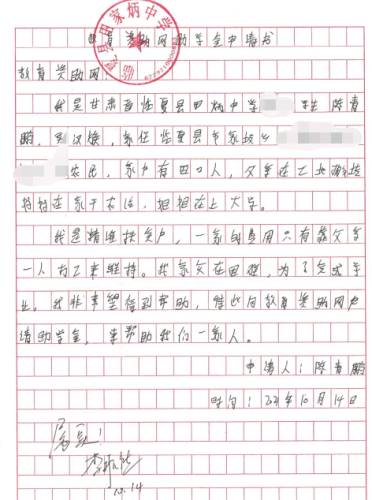 教育资助网助学金申请书
教育资助网:
我是甘肃省临夏县田炳中学 学生 陈青
鹏,男汉族,家住临夏县韦家坡乡
农民,家中有四口人,父亲在工地
妈妈在家干农活,姐姐在上大学。
我是精准扶贫户,一家的费用只有靠父亲
一人打工来维持。我家处在困难,为了完成学
业。我非常望得到帮助,借此向教育资助网申
请助学金,来帮助我们一家人。
申请人:陈青鹏
时间:2021年10月14日
属实!
10.14